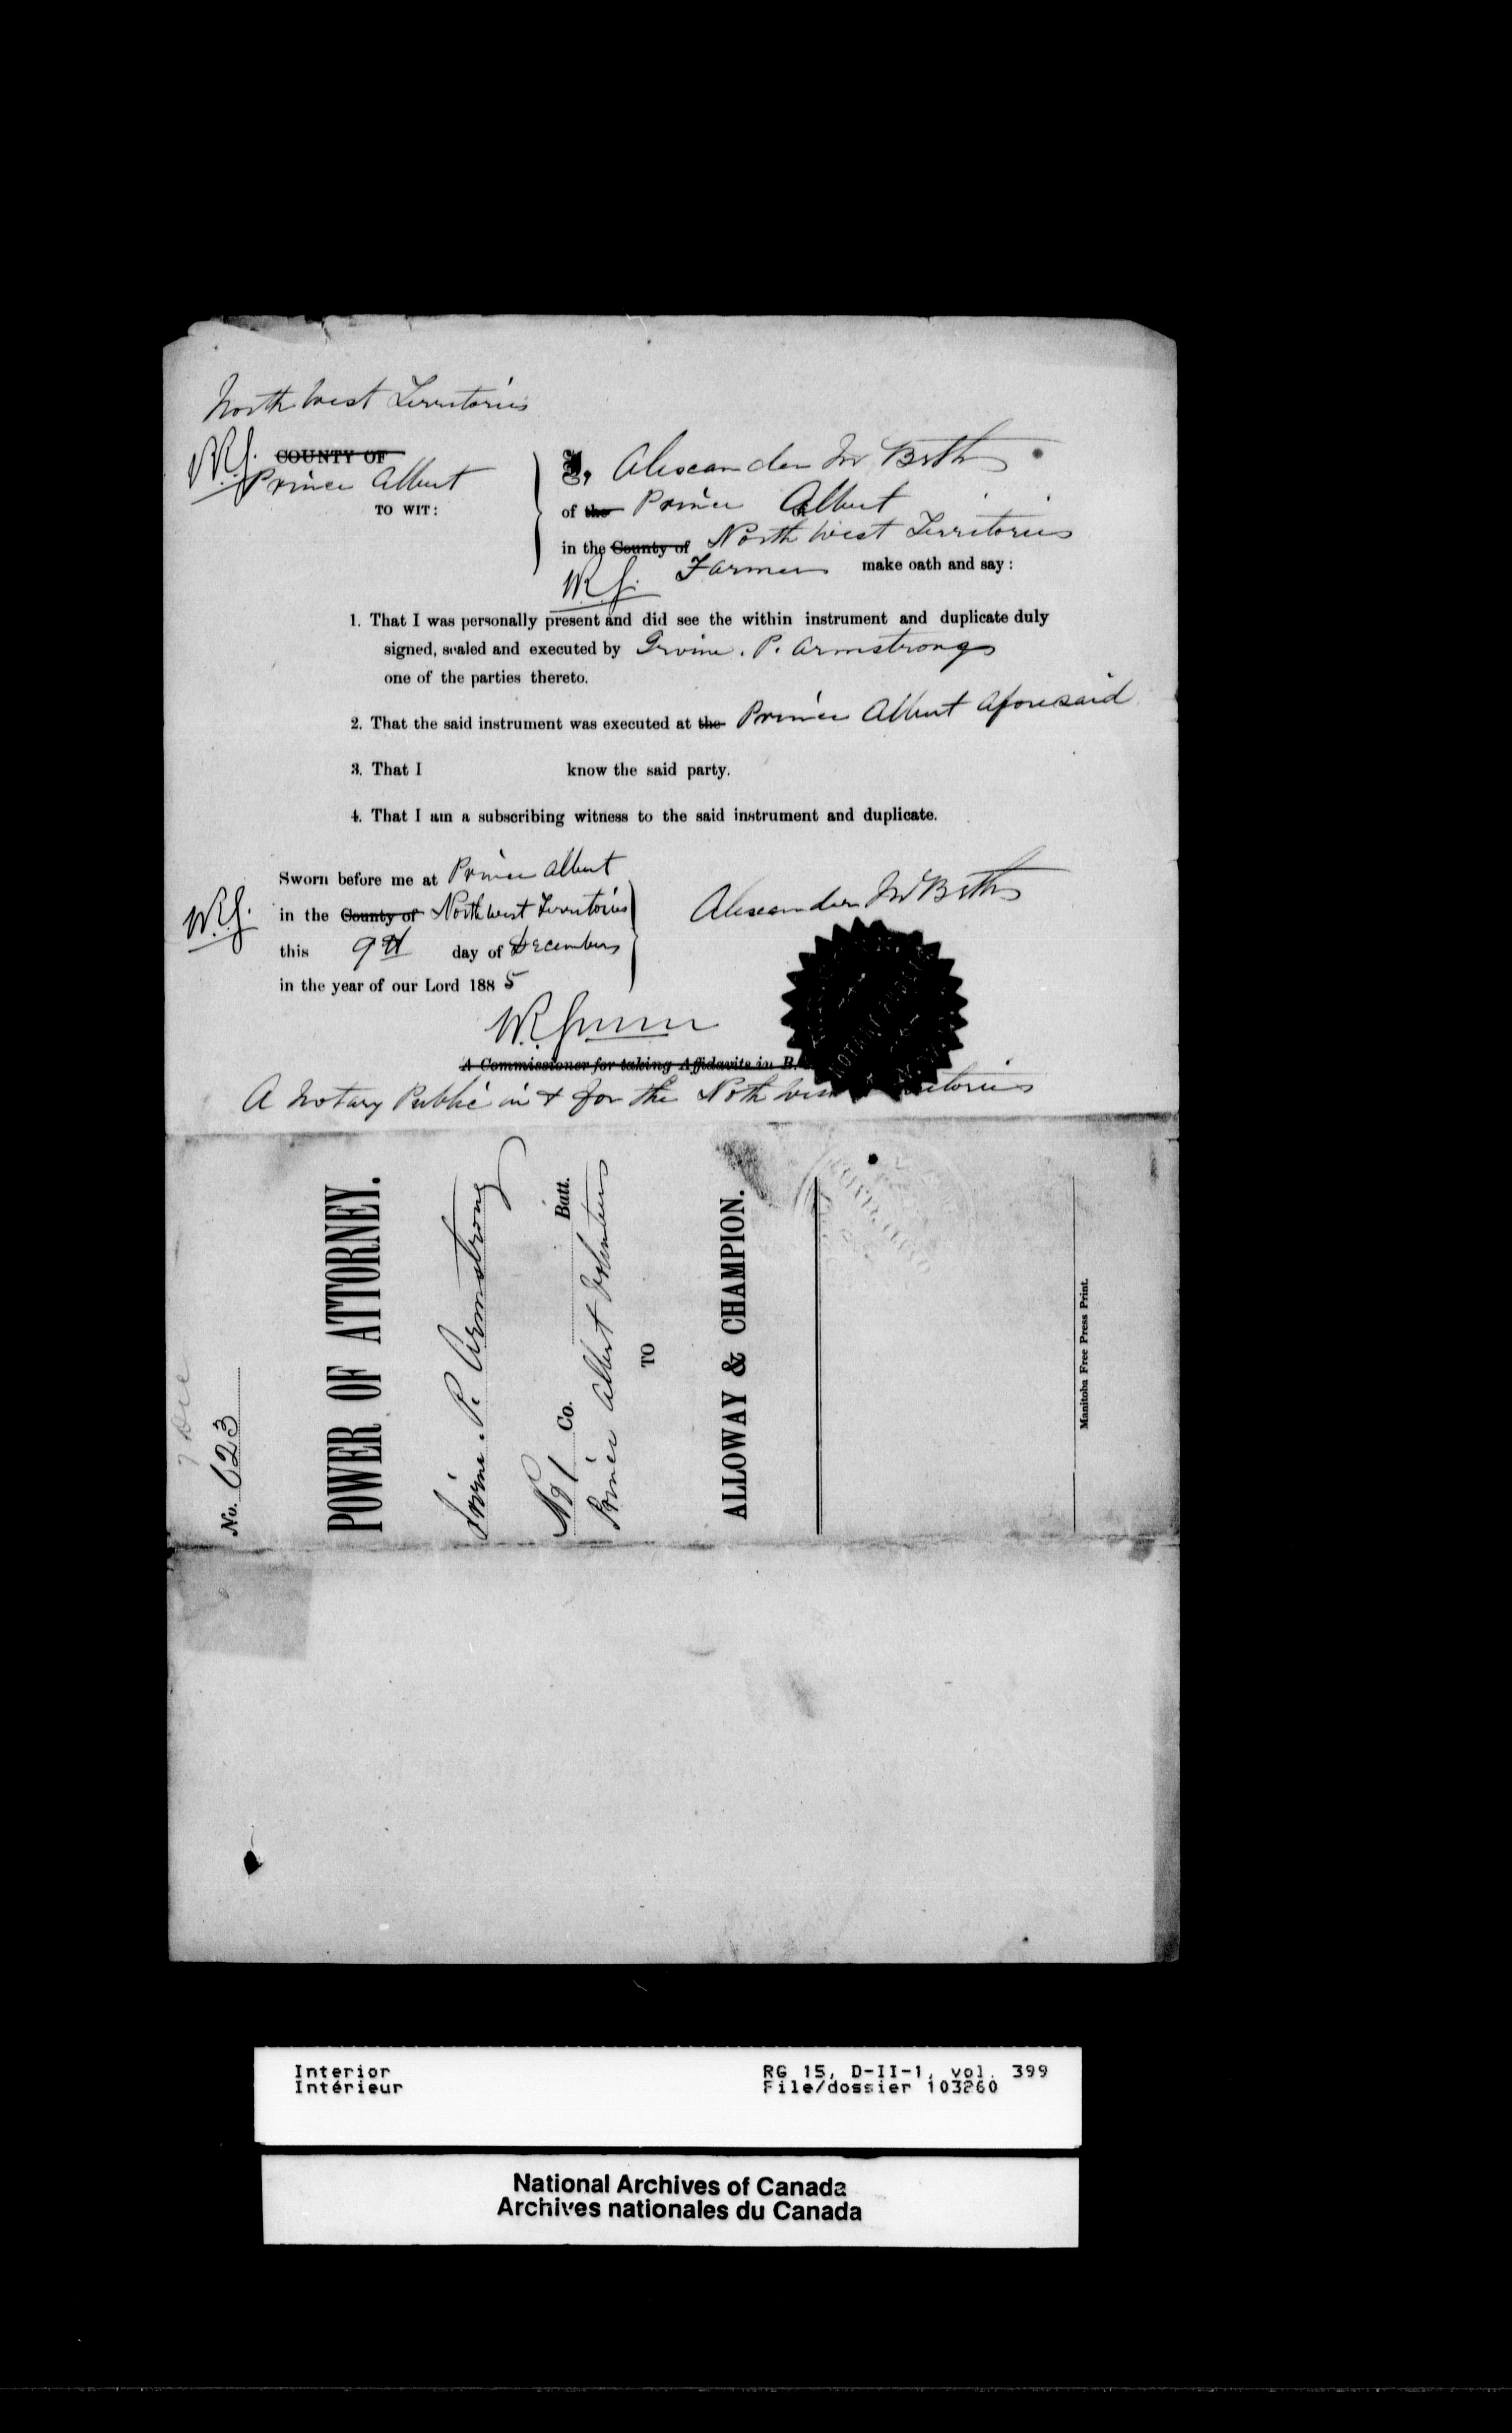 North West Territories
W.R.G. COUNTY OF
Prince Albert
TO WIT:
I, Alexander McBeth
of the Prince Albert
in the County of North West Territories
W.R.G. Farmer make oath and say:
1. That I was personally present and did see the within instrument and duplicate duly
signed, sealed and executed by Irvine. P. Armstrong
one of the parties thereto.
2. That the said instrument was executed at the Prince Albert aforesaid
3. That I know the said party.
4. That I am a subscribing witness to the said instrument and duplicate.
Sworn before me at Prince Albert
W.R.G. in the County of North West Territories
this 9th day of December
in the year of our Lord 1885
Alexander McBeth
W.R. Gunn
A Commissioner for taking Affidavits in B.
A Notary Public in & for the Noth West
NOTARY PUBLIC
No. 623
POWER OF ATTORNEY.
Irvine. P. Armstrong
No 1 Co. Batt.
Prince Albert Volunteers
TO
ALLOWAY & CHAMPION.
Manitoba Free Press Print.
Interior
Intérieur
RG 15, D-II-1, vol. 399
File/dossier 103260
National Archives of Canada
Archives nationales du Canada